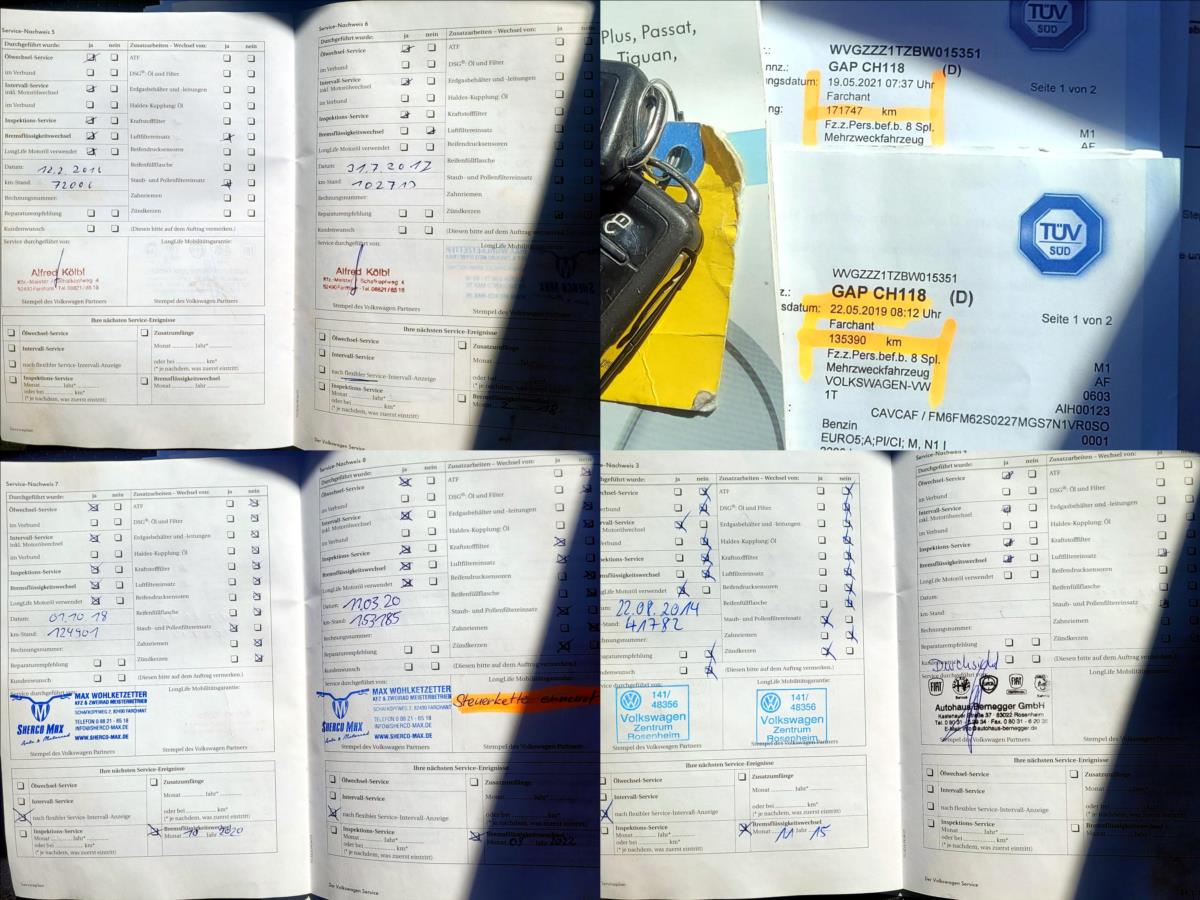 Service-Nachweis 5
Durchgeführt wurde: ja nein Zusatzarbeiten – Wechsel von: ja nein
Ölwechsel-Service ATF
im Verbund DSG®: Öl und Filter
Intervall-Service Erdgasbehälter und -leitungen
inkl. Motorölwechsel
im Verbund Haldex-Kupplung: Öl
Inspektions-Service Kraftstofffilter
Bremsflüssigkeitswechsel Luftfiltereinsatz
LongLife Motoröl verwendet Reifendrucksensoren
Datum: Reifenfüllflasche
km-Stand: 72006 Staub- und Pollenfiltereinsatz
Rechnungsnummer: Zahnriemen
Reparaturempfehlung Zündkerzen
Kundenwunsch (Diesen bitte auf dem Auftrag vermerken.)
Service durchgeführt von: LongLife Mobilitätsgarantie:
Alfred Kölbl
Stempel des Volkswagen Partners
Ihre nächsten Service-Ereignisse
Ölwechsel-Service Zusatzumfänge
Intervall-Service Monat Jahr*
nach flexibler Service-Intervall-Anzeige oder bei km*
(* je nachdem, was zuerst eintritt)
Inspektions-Service Bremsflüssigkeitswechsel
Monat Jahr* Monat Jahr
oder bei km*
(* je nachdem, was zuerst eintritt)
Serviceplan
Service-Nachweis 6
Durchgeführt wurde: ja nein Zusatzarbeiten – Wechsel von:
Ölwechsel-Service ATF
im Verbund DSG®: Öl und Filter
Intervall-Service Erdgasbehälter und -leitungen
inkl. Motorölwechsel
im Verbund Haldex-Kupplung: Öl
Inspektions-Service Kraftstofffilter
Bremsflüssigkeitswechsel Luftfiltereinsatz
LongLife Motoröl verwendet Reifendrucksensoren
Datum: 31.7.2017 Reifenfüllflasche
km-Stand: 102713 Staub- und Pollenfiltereinsatz
Rechnungsnummer: Zahnriemen
Reparaturempfehlung Zündkerzen
Kundenwunsch (Diesen bitte auf dem Auftrag vermerken.)
Service durchgeführt von: LongLife Mobilitätsgarantie:
Alfred Kölbl
Stempel des Volkswagen Partners
Ihre nächsten Service-Ereignisse
Ölwechsel-Service Zusatzumfänge
Intervall-Service Monat
nach flexibler Service-Intervall-Anzeige oder bei
Inspektions-Service
Monat Jahr*
oder bei km*
(* je nachdem, was zuerst eintritt)
Der Volkswagen Service
Plus, Passat,
Tiguan,
TÜV
SÜD
WVGZZZ1TZBW015351
GAP CH118 (D)
19.05.2021 07:37 Uhr
Seite 1 von 2
Farchant
171747 km
Fz.z.Pers.bef.b. 8 Spl.
Mehrzweckfahrzeug
M1
AF
TÜV
SÜD
WVGZZZ1TZBW015351
GAP CH118 (D)
sdatum: 22.05.2019 08:12 Uhr
Seite 1 von 2
Farchant
135390 km
Fz.z.Pers.bef.b. 8 Spl.
Mehrzweckfahrzeug
VOLKSWAGEN-VW
1T
M1
AF
0603
AIH00123
CAVCAF / FM6FM62S0227MGS7N1VR0SO
Benzin 0001
EURO5;A;PI/CI; M, N1 I
Service-Nachweis 7
Durchgeführt wurde: ja nein Zusatzarbeiten – Wechsel von: ja nein
Ölwechsel-Service ATF
im Verbund DSG®: Öl und Filter
Intervall-Service Erdgasbehälter und -leitungen
inkl. Motorölwechsel
im Verbund Haldex-Kupplung: Öl
Inspektions-Service Kraftstofffilter
Bremsflüssigkeitswechsel Luftfiltereinsatz
LongLife Motoröl verwendet Reifendrucksensoren
Datum: 01.10 18 Reifenfüllflasche
km-Stand: 124901 Staub- und Pollenfiltereinsatz
Rechnungsnummer: Zahnriemen
Reparaturempfehlung Zündkerzen
Kundenwunsch (Diesen bitte auf dem Auftrag vermerken.)
Service durchgeführt von: LongLife Mobilitätsgarantie:
SHERCO MAX
Auto & Motorrad
MAX WOHLKETZETTER
KFZ & ZWEIRAD MEISTERBETRIEB
SCHAFKOPFWEG 2, 82490 FARCHANT
TELEFON 0 88 21 - 65 18
INFO@SHERCO-MAX.DE
WWW.SHERCO-MAX.DE
Stempel des Volkswagen Partners
Ihre nächsten Service-Ereignisse
Ölwechsel-Service Zusatzumfänge
Intervall-Service Monat Jahr*
nach flexibler Service-Intervall-Anzeige oder bei km*
Inspektions-Service Bremsflüssigkeitswechsel
Monat Jahr* Monat 10 Jahr 2020
oder bei km* (* je nachdem, was zuerst eintritt)
Serviceplan
Service-Nachweis 8
Durchgeführt wurde: ja nein Zusatzarbeiten – Wechsel von: ja nein
Ölwechsel-Service ATF
im Verbund DSG®: Öl und Filter
Intervall-Service Erdgasbehälter und -leitungen
inkl. Motorölwechsel
im Verbund Haldex-Kupplung: Öl
Inspektions-Service Kraftstofffilter
Bremsflüssigkeitswechsel Luftfiltereinsatz
LongLife Motoröl verwendet Reifendrucksensoren
Datum: 11.03.20 Reifenfüllflasche
km-Stand: 153185 Staub- und Pollenfiltereinsatz
Rechnungsnummer: Zahnriemen
Reparaturempfehlung Zündkerzen
Kundenwunsch (Diesen bitte auf dem Auftrag vermerken.)
Service durchgeführt von: LongLife Mobilitätsgarantie:
SHERCO MAX
Auto & Motorrad
MAX WOHLKETZETTER
KFZ & ZWEIRAD MEISTERBETRIEB
SCHAFKOPFWEG 2, 82490 FARCHANT
TELEFON 0 88 21 - 65 18
INFO@SHERCO-MAX.DE
WWW.SHERCO-MAX.DE
Steuerkette erneuert
Stempel des Volkswagen Partners
Ihre nächsten Service-Ereignisse
Ölwechsel-Service Zusatzumfänge
Intervall-Service Monat
nach flexibler Service-Intervall-Anzeige oder bei km*
Inspektions-Service Bremsflüssigkeitswechsel
Monat Jahr* Monat 03 Jahr 2022
oder bei km*
(* je nachdem, was zuerst eintritt)
Der Volkswagen Service
Service-Nachweis 3
ja nein Zusatzarbeiten – Wechsel von: ja nein
ATF
DSG®: Öl und Filter
Erdgasbehälter und -leitungen
Haldex-Kupplung: Öl
Kraftstofffilter
Luftfiltereinsatz
Reifendrucksensoren
22.08.2014 Reifenfüllflasche
41782 Staub- und Pollenfiltereinsatz
Zahnriemen
Zündkerzen
(Diesen bitte auf dem Auftrag vermerken.)
LongLife Mobilitätsgarantie:
141/
48356
Volkswagen
Zentrum
Rosenheim
141/
48356
Volkswagen
Zentrum
Rosenheim
Stempel des Volkswagen Partners
Ihre nächsten Service-Ereignisse
Ölwechsel-Service Zusatzumfänge
Intervall-Service Monat Jahr*
nach flexibler Service-Intervall-Anzeige oder bei km*
Inspektions-Service Bremsflüssigkeitswechsel
Monat Jahr* Monat 11 Jahr 15
oder bei km* (* je nachdem, was zuerst eintritt)
Serviceplan
Durchgeführt wurde: ja nein Zusatzarbeiten – Wechsel von: ja nein
Ölwechsel-Service ATF
im Verbund DSG®: Öl und Filter
Intervall-Service Erdgasbehälter und -leitungen
inkl. Motorölwechsel
im Verbund Haldex-Kupplung: Öl
Inspektions-Service Kraftstofffilter
Bremsflüssigkeitswechsel Luftfiltereinsatz
LongLife Motoröl verwendet Reifendrucksensoren
Datum: Reifenfüllflasche
km-Stand: Staub- und Pollenfiltereinsatz
Rechnungsnummer: Zahnriemen
Reparaturempfehlung Zündkerzen
(Diesen bitte auf dem Auftrag vermerken.)
LongLife Mobilitätsgarantie:
FIAT
Autohaus Bernegger GmbH
Kastenauer Straße 37 · 83022 Rosenheim
Stempel des Volkswagen Partners
Ihre nächsten Service-Ereignisse
Ölwechsel-Service Zusatzumfänge
Intervall-Service Monat
nach flexibler Service-Intervall-Anzeige oder bei
Inspektions-Service
Monat Jahr*
oder bei km*
(* je nachdem, was zuerst eintritt)
Der Volkswagen Service